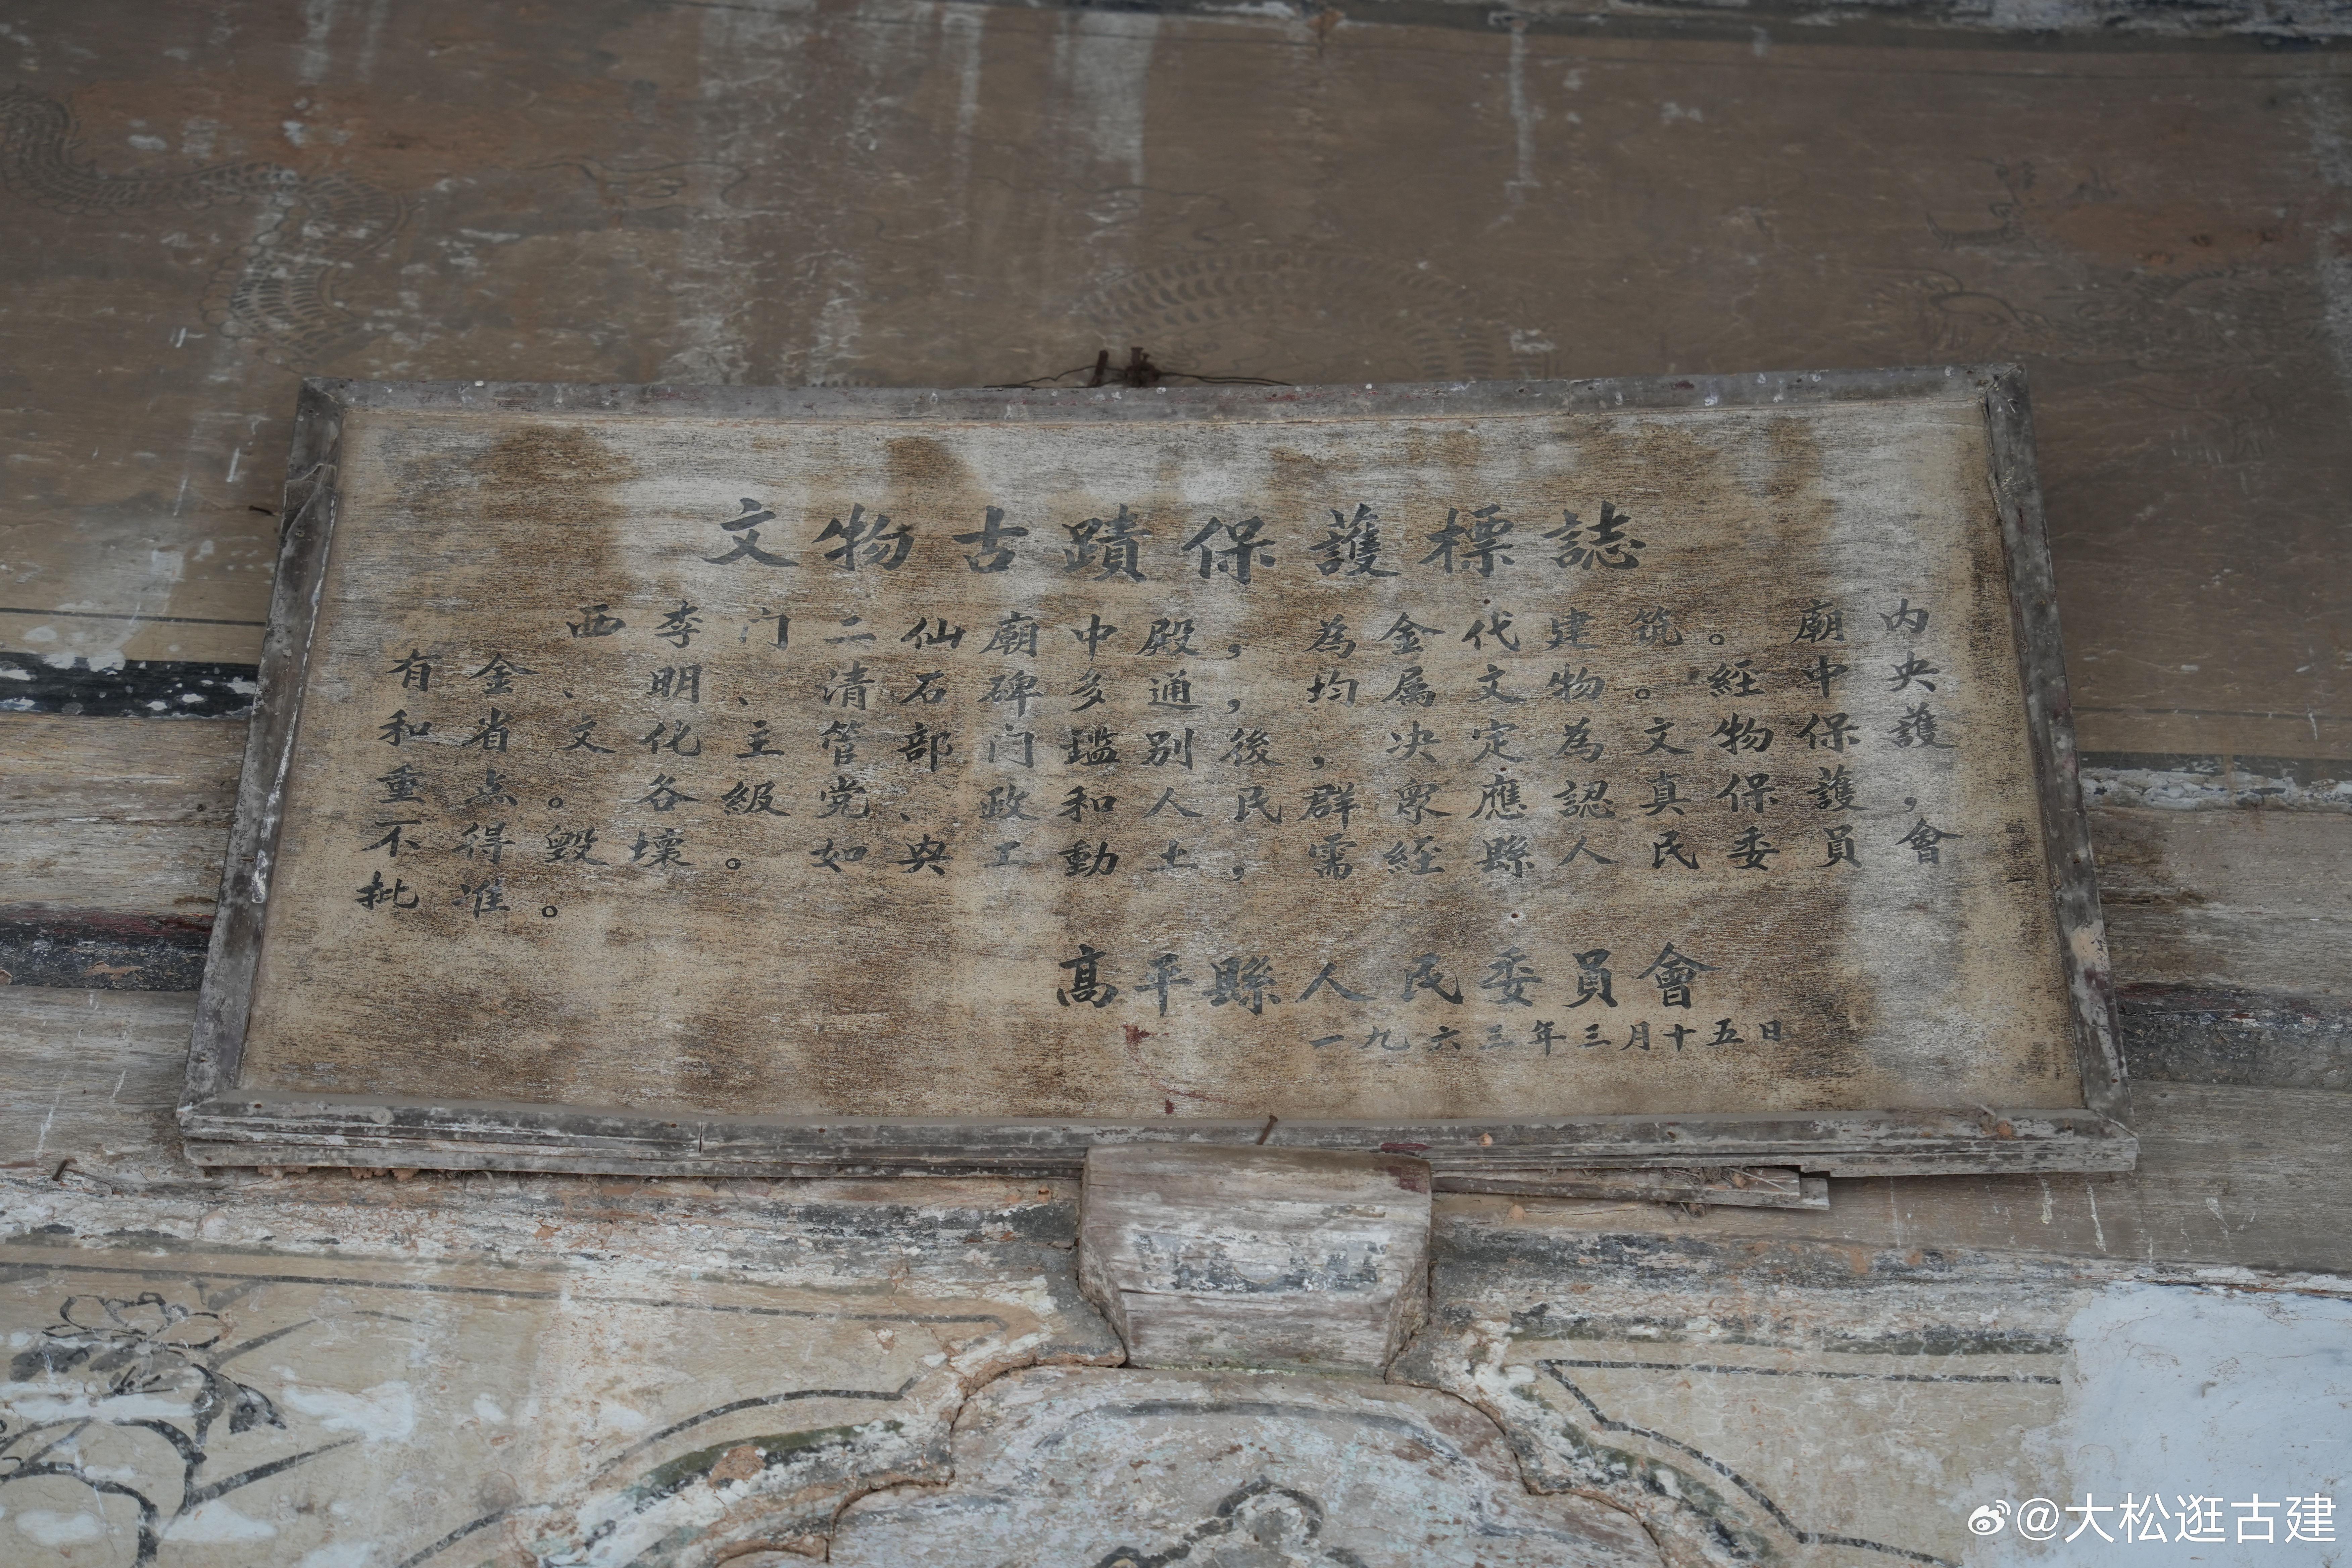 文物古蹟保護標誌
西李门二仙廟中殿，為金代建筑。廟内
有金、明、清石碑多通，均属文物。經中央
和省文化主管部门鑑别後，决定為文物保護
重点。各級党、政和人民群眾應認真保護，
不得毁壞。如與工動土，需經縣人民委員會
批准。
高平縣人民委員會
一九六三年三月十五日
@大松逛古建